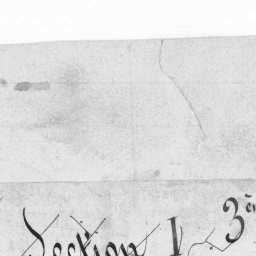 Section I 3e